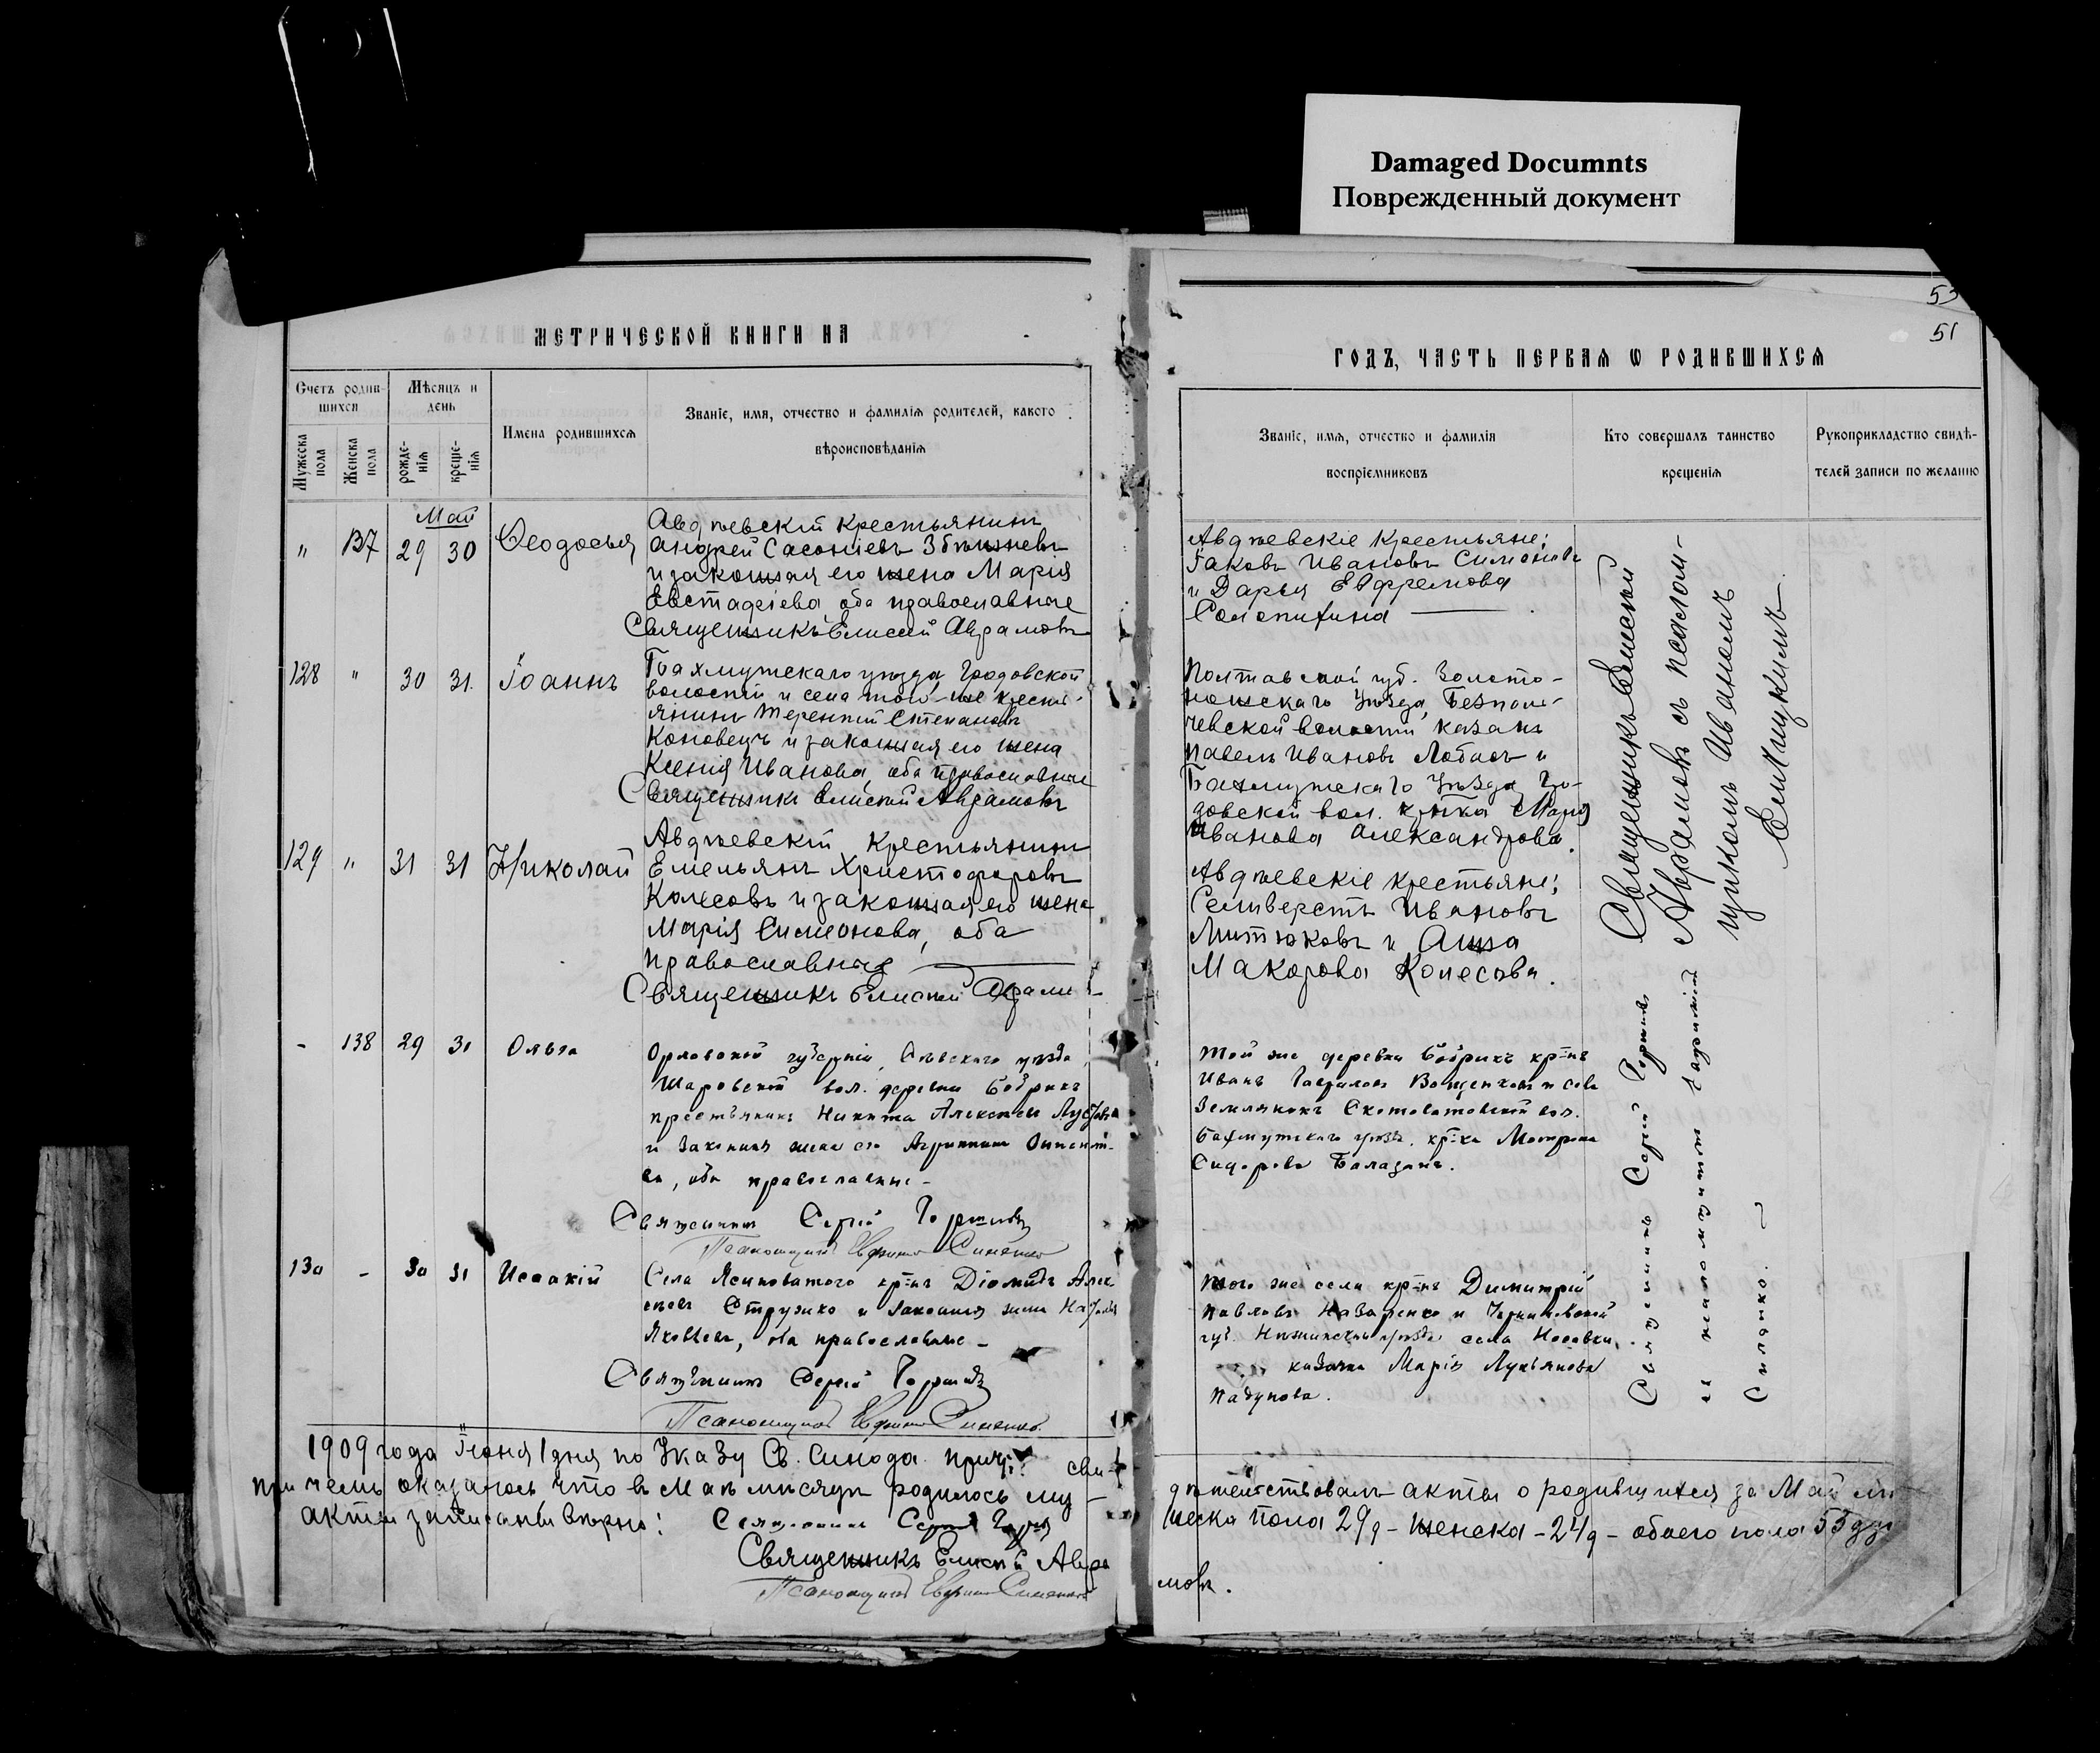 Damaged Documnts
Поврежденный документ
53
51
МЕТРИЧЕСКОЙ КНИГИ НА
ГОДЪ, ЧАСТЬ ПЕРВАЯ Ѡ РОДИВШИХСЯ
Счетъ родив-
шихся
Мѣсяцъ и
день
Мужеска
пола
Женска
пола
рожде-
нія
креще-
нія
Имена родившихся
Званіе, имя, отчество и фамилія родителей, какого
вѣроисповѣданія
Званіе, имя, отчество и фамилія
воспріемниковъ
Кто совершалъ таинство
крещенія
Рукоприкладство свидѣ-
телей записи по желанію
Май
" 137 29 30 Ѳеодосья
Авдѣевскій крестьянинъ
Андрей Сасоніевъ
и законная его жена Марія
Евстафіева оба православные
Священникъ Елисей Авраамовъ
Авдѣевскіе крестьяне;
Іаковъ Ивановъ Симоновъ
и Дарья Евфремова
Солопихина
128 " 30 31. Іоаннъ
Бахмутскаго уѣзда, Градовской
волости и села той-же кресть-
янинъ Терентій Степановъ
Коновецъ и законная его жена
Ксенія Иванова, оба православные
Священникъ Елисей Авраамовъ
Полтавской губ. Золото-
ношскаго Уѣзда,
чевской волости казакъ
Павелъ Ивановъ Лобасъ и
Бахмутскаго Уѣзда, Гро-
довской вол. кр-ка Марія
Иванова Александрова.
129 " 31 31 Николай
Авдѣевскій крестьянинъ
Емельянъ Христофоровъ
Колесовъ и законная его жена
Марія Симеонова, оба
православные
Священникъ Елисей
Авдѣевскіе крестьяне;
Селиверстъ Ивановъ
Митюковъ и Анна
Макарова Колесова.
- 138 29 31 Ольга
Орловской губерніи, Сѣвскаго уѣзда
Шаровской вол. деревни Бобрикъ
крестьянинъ Никита Алексѣевъ
и законная жена его Агриппина
оба православные -
Священникъ Сергій
Псаломщикъ
Той же деревни Бобрикъ кр-нъ
Иванъ Гавриловъ и села
Землянокъ Скотоватовской вол.
Бахмутскаго уѣзда. кр-ка Матрона
Сидорова
130 - 30 31 Исаакій
Села Ясиноватого кр-нъ Діомидъ Алек
сѣевъ Стружко и законная жена
Яковлева, оба православные -
Священникъ Сергій
Псаломщикъ
Того же села кр-нъ Димитрій
Павловъ Назаренко и Черниговской
губ. Нѣжинскаго уѣзда села Носовки,
казачка Марія Лукьянова
Падунова.
Священникъ Елисей
Авраамовъ съ псалом-
щикомъ Иваномъ
Священникъ Сергій
и псаломщикъ
1909 года Іюня 1 дня по Указу Св. Синода причтъ сви-
дѣтельствовалъ акты о родившихся за Май
при чемъ оказалось что въ Маѣ мѣсяцѣ родилось му-
жеска пола 29 д - женска - 24 д - обоего пола 53
акты записаны вѣрно: Священникъ Сергій
Священникъ Елисей Авраа
мовъ.
Псаломщикъ